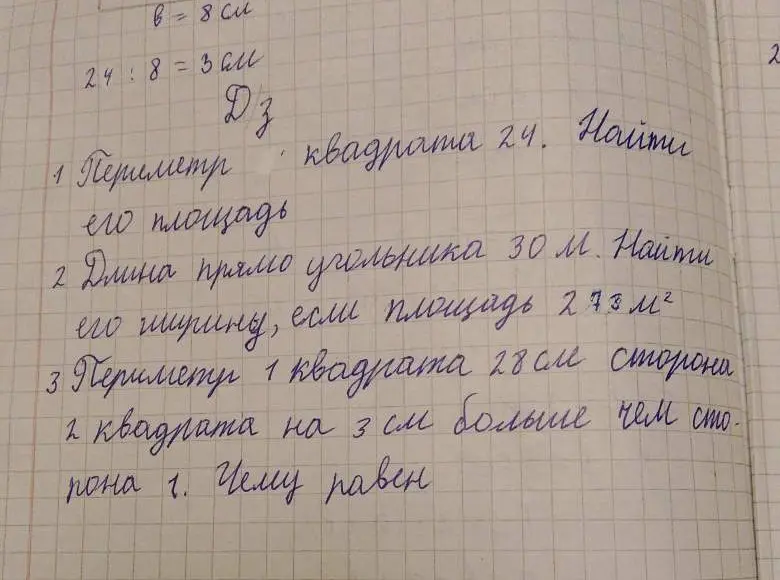 в = 8 см
24 : 8 = 3 см
Дз
1 Периметр квадрата 24. Найти
его площадь
2 Длина прямо угольника 30 м. Найти
его ширину, если площадь 273 м²
3 Периметр 1 квадрата 28 см сторона
2 квадрата на 3 см больше чем сто-
рона 1. Чему равен
2